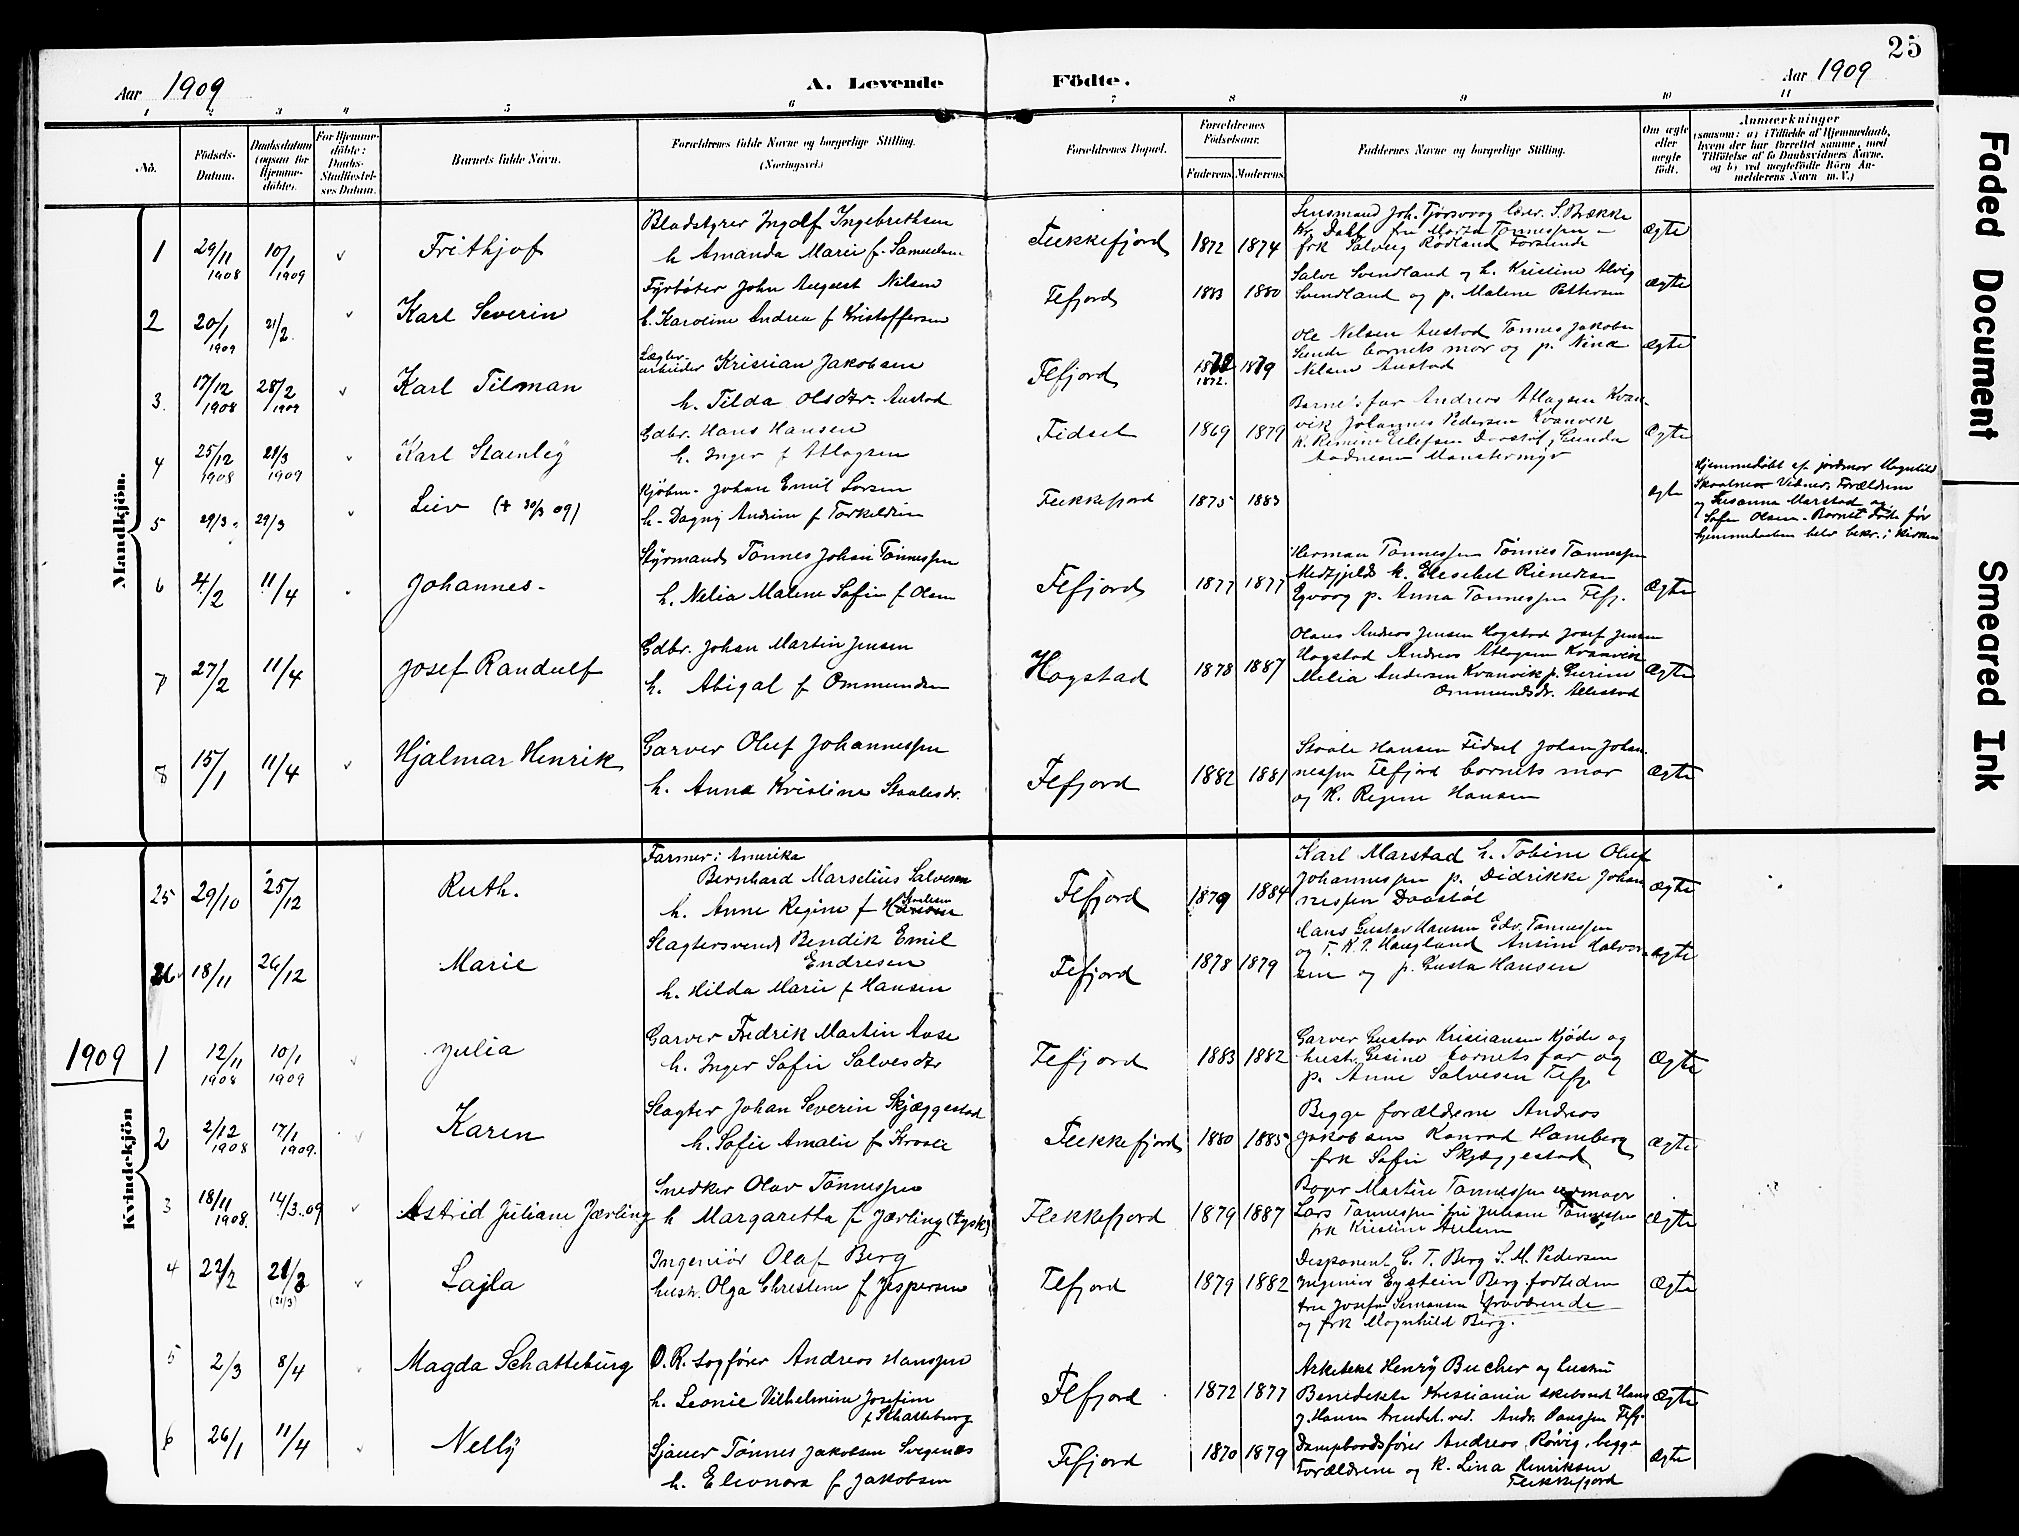 25
Aar 1909
A. Levende
Födte.
Aar 1909
1 2 3 4 5 6 7 8 9 10 11
No.
Födsels-
Datum.
Daabsdatum
(ogsaa for
Hjemme-
döbte).
For Hjemme-
döbte:
Daabs-
Stadfæstel-
ses Datum.
Barnets fulde Navn.
Forældrenes fulde Navne og borgerlige Stilling.
(Næringsvei.)
Forældrenes Bopæl.
Forældrenes
Födselsaar.
Faderens Moderens
Faddernes Navne og borgerlige Stilling.
Om ægte
eller
uegte
födt.
Anmærkninger
(saasom: a) i Tilfælde af Hjemmedaab,
hvem der har forrettet samme, med
Tilföielse af to Daabsvidners Navne,
og b) ved uegtefödte Börn An-
melderens Navn m. V.)
Mandkjön.
1 29/11 1908 10/1 1909 Frithjof
Bladstyrer Ingolf Ingebrethsen
h. Amanda Marie f. Samuelsen
Flekkefjord 1872 1874
Lensmand Joh. Tjørsvaag lærer S. Brække
Kr. Dahl fru Marta Tønnessen
frk Salveig Rødland Forsunde
ægte
2 20/1 1909 21/2 Karl Severin
Fyrbøter John August Nilsen
h. Karoline Andrea f Kristoffersen
Flfjord 1883 1880
Salve Svendland og h. Kristine Alvig
Svendland og p. Malene Pettersen
ægte
3. 17/12 1908 28/2 1909 Karl Tilman
Lægter-
arbeider Kristian Jakobsen
h. Tilda Olsdtr. Austad
Flfjord 1872. 1879
Ole Nelsen Austad Tønnes Jakobsen
Sunde barnets mor og p. Nina
Nelsen Austad
ægte
4 25/12 1908 28/3 1909 Karl Stænley
Gdbr. Hans Hansen
h. Inger f Atlagsen
Fidsel 1869 1879
Barnets far Andreas Atlagsen Kvan-
vik Johannes Pedersen Kvanvik
Aadnesen Monstermyr
ægte
5 29/3 29/3 Leiv (+ 30/3 09)
Kjøbm. Johan Emil Larsen
h. Dagny Andrine f Torkeldsen
Flekkefjord 1875 1883
ægte
Hjemmedøbt af jordmor Magnhild
Skaalnes Vidner: Forældrene
og Susanna Marstad og
Sofie Olsen. Barnet døde før
hjemmedaaben blev bekr. i Kirken
6 4/2 11/4 Johannes-
Styrmand Tønnes Johan Tønnessen
h. Nelia Malene Sofie f Olsen
Flfjord 1877 1877
Herman Tønnessen Tønnes Tønnessen
p. Anna Tønnessen Flfj.
Ægte
7 27/2 11/4 Josef Randulf
Gdbr. Johan Martin Jensen
h. Abigal f Ommundsen
Hogstad 1878 1887
Olaus Andreas Jensen Hogstad Josef Jensen
Hogstad Andreas Atlagsen Kvanvik
Melia Andersen Kvanvik p. Gurine
Ommundsdr. Allestad
Ægte
8 15/1 11/4 Hjalmar Henrik
Garver Oluf Johannessen
h. Anna Kristine Staalesdr.
Flfjord 1882 1881
Staale Hansen Fidsel Johan Johan-
nessen Flfjord barnets mor
og K. Regine Hansen
Ægte
25 29/10 25/12 Ruth.
Farmer i Amerika
Bernhard Marselius Salvesen
h. Anne Regine f
Flfjord 1879 1884
Karl Marstad h. Tobine Oluf
Johannessen p. Didrikke Johan
nessen Daastøl
Ægte
26 18/11 26/12 Marie
Slagtersvend Bendik Emil
Endresen
h. Hilda Marie f Hansen
Flfjord 1878 1879
Hans Gustav Hansen Edv. Tønnessen
og T. K. P. Haugland Ansine Halvor-
sen og p. Gusta Hansen
Ægte
1909
Kvindekjön
1 12/11 1908 10/1 1909 Julia
Garver Fredrik Martin Aase
h. Inger Sofie Salvesdtr
Flfjord 1883 1882
Garver Gustav Kristiansen Kjøde og
hustr. Gesine barnets far og
p. Anne Salvesen Flfj.
Ægte
2 2/12 1908 17/1 1909. Karen
Slagter Johan Severin Skjæggestad
h. Sofie Amalie f Kroale
Flekkefjord 1880 1885
Begge forældrene Andreas
Jakobsen Konrad Hamberg
frk Sofie Skjæggestad
Ægte
3 18/11 1908. 14/3.09 Astrid Juliane Jærling
Snedker Olav Tønnessen
h Margaretha f Jærling (tysk)
Flekkefjord 1879 1887
Bager Martin Tønnessen urmager
Lars Tønnessen fru Juliane Tønnessen
frk Kristine Aulum
Ægte
4 22/2 21/3 (21/3) Lajla
Ingeniør Olaf Berg
hustr. Olga Christine f Jespersen
Flfjord 1879 1882
Disponent C. T. Berg S. M. Pedersen
Ingeniør Eystein Berg forleden
fru Josefa Simonsen fraværende
og frk Magnhild Berg.
Ægte
5 2/3 8/4 Magda Schatteburg
O.R. sagfører Andreas Hanssen
h. Leonie Vilhelmine Josefine
f Schatteburg
Flfjord 1872 1877
Arkitekt Henry Bucher og hustru
Benedikte Kristiania skibsred Hans
J. Hansen Arendal ved. Andr. Hanssen Flfj.
Ægte
6 26/1 11/4 Nelly
Sjauer Tønnes Jakobsen Svegenæs
h. Eleonora f Jakobsen
Flfjord 1870 1879
Dampbaadsfører Andreas Rørvig, begge
Forældrene og K. Lina Henriksen
Flekkefjord
Ægte
Faded Document
Smeared Ink